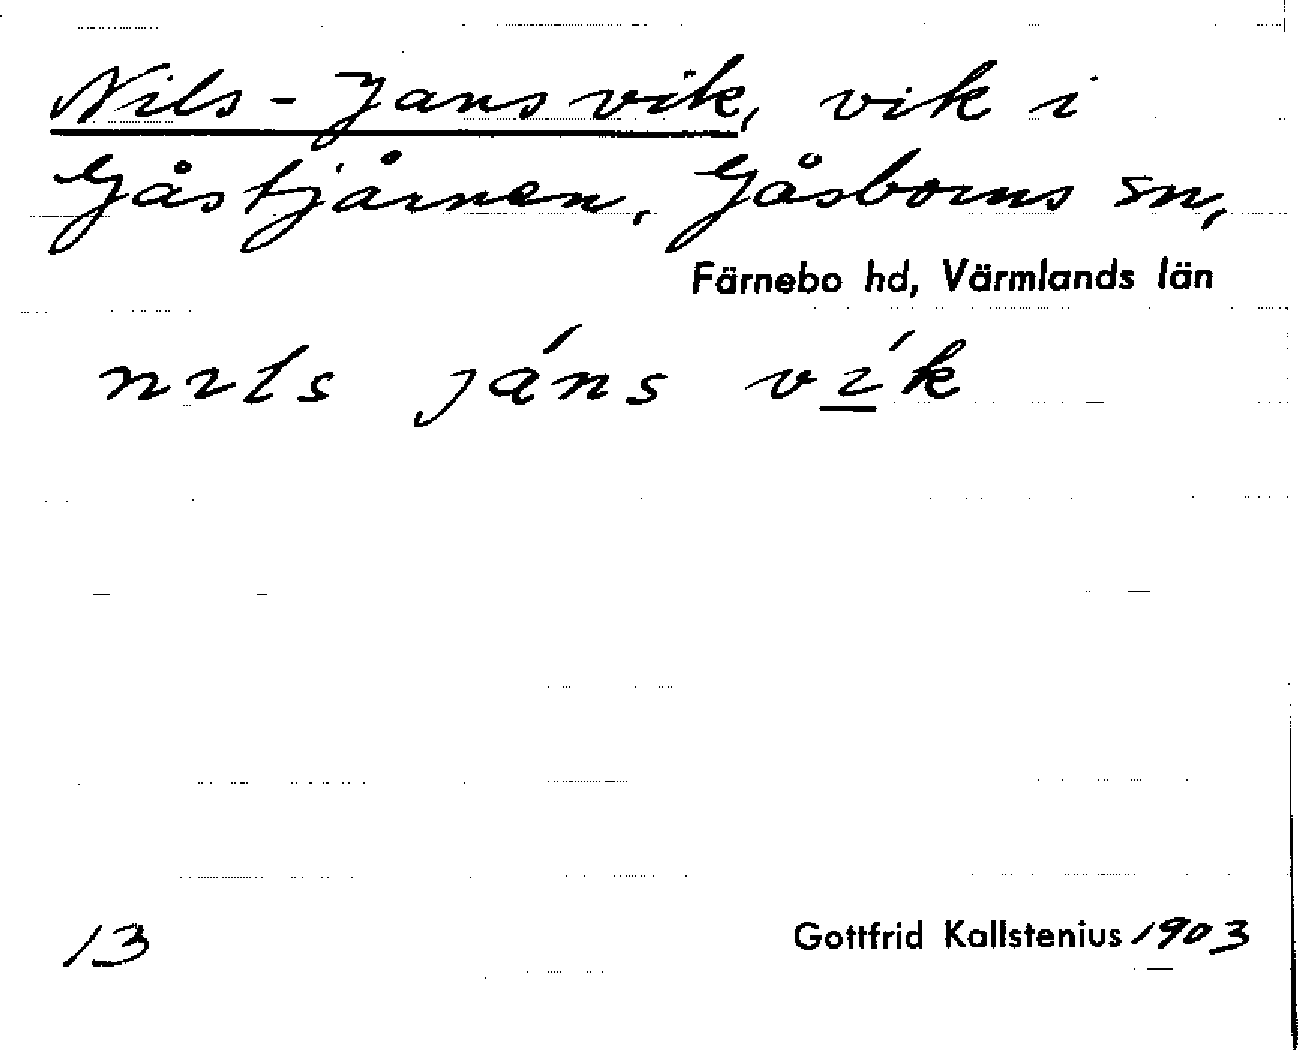 Nils-Jansvik, vik i
Gåstjärnen, Gåsborns sn,
Färnebo hd, Värmlands län
nıls jáns vı́k
13
Gottfrid Kallstenius 1903